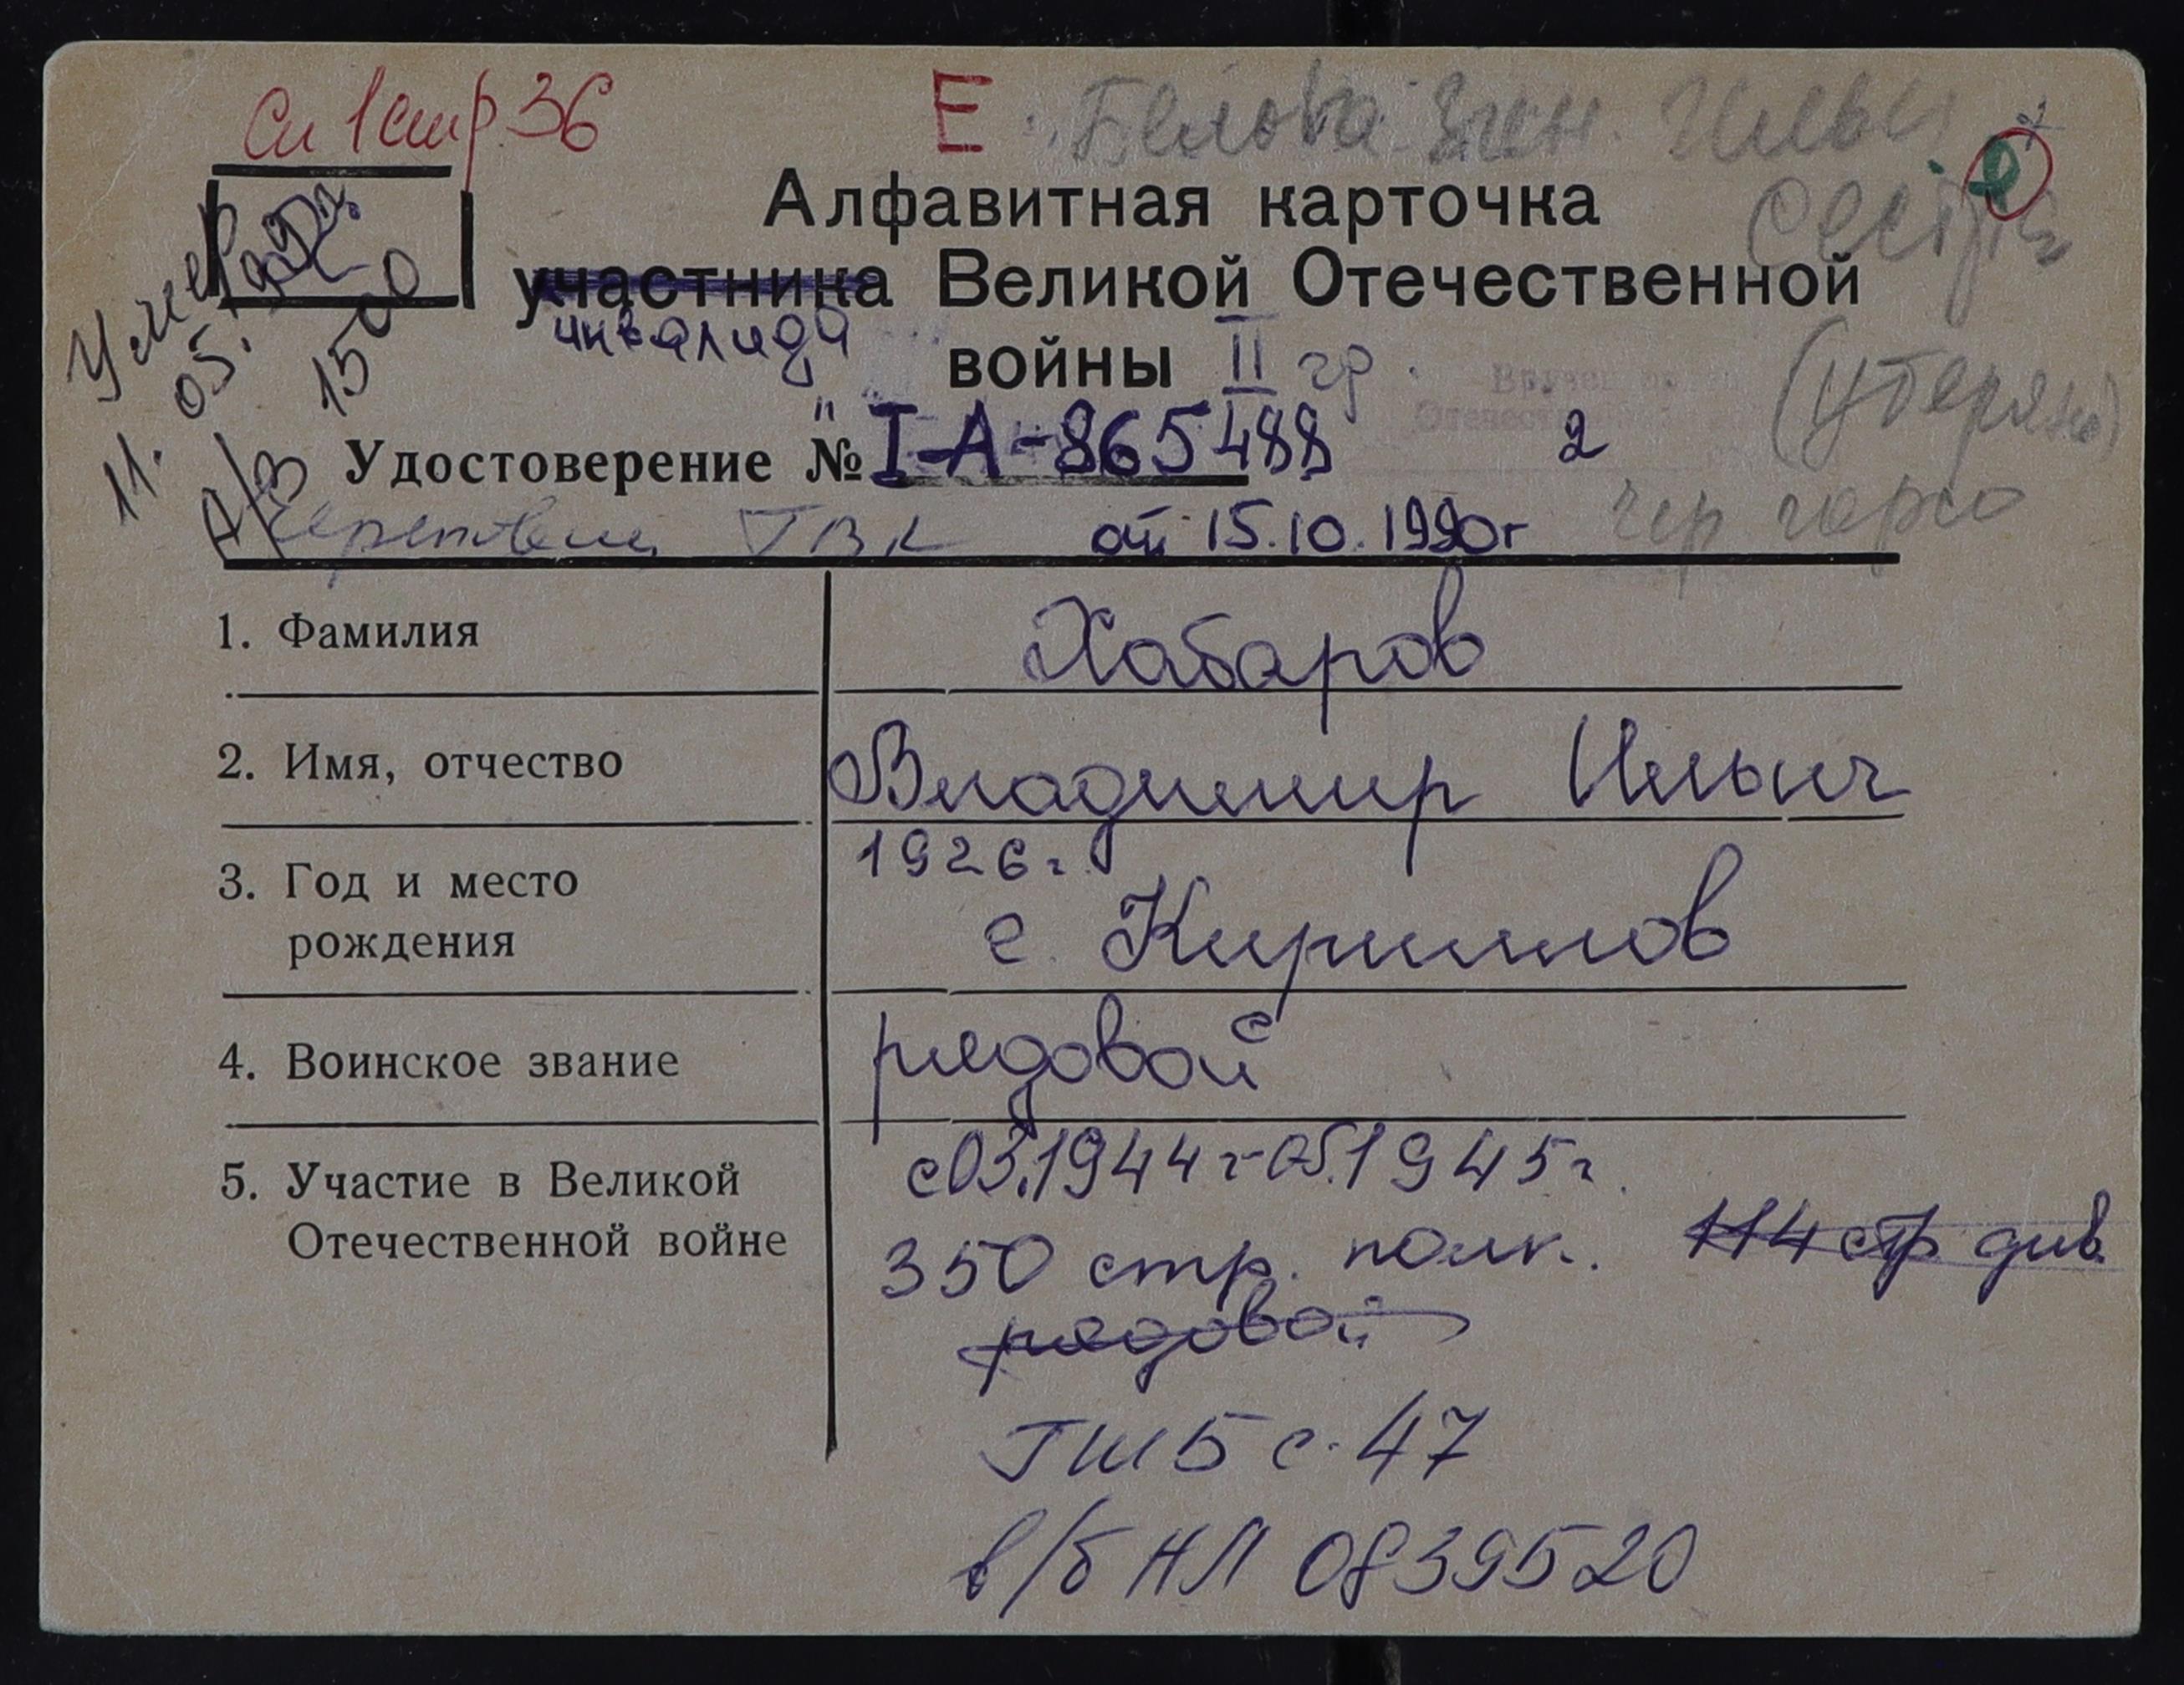 Сп 1 стр 36
Е
Белова Зин. Ильин
сестра
(утеряно)
Умер
11. 05.
А/З 1500
Алфавитная карточка
участника Великой Отечественной
инвалида
войны II гр.
Удостоверение № "I-А-865488
2
Череповец ГВК от 15.10.1990г
1. Фамилия
Хабаров
2. Имя, отчество
Владимир Ильич
3. Год и место
рождения
1926г.
г. Кириллов
4. Воинское звание
рядовой
5. Участие в Великой
Отечественной войне
с 03.1944г-05.1945г.
350 стр. полк. 114 стр див.
рядовой
ГШ5 с. 47
в/б НЛ 0839520